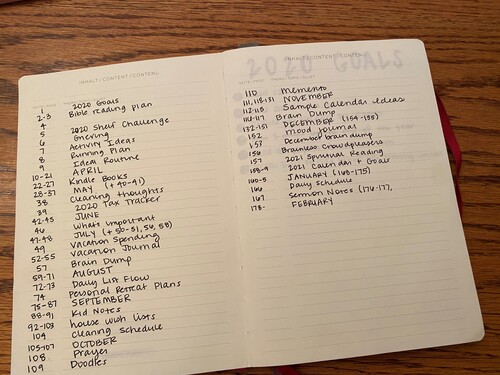 INHALT / CONTENT / CONTENU
1 2020 Goals
2-3 Bible reading plan
4
5 2020 Shelf Challenge
6 Giving
7 Activity Ideas
8 Running Plan
9 Ideal Routine
10-21 APRIL
22-27 Kindle Books
28-37 MAY (+40-41)
38 Cleaning thoughts
39 2020 Tax Tracker
42-45 JUNE
46 Whats important
47-48 JULY (+50-51, 56, 58)
49 Vacation Spending
52-55 Vacation Journal
57 Brain Dump
59-71 AUGUST
72-73 Daily List Flow
74 Personal Retreat Plans
75-87 SEPTEMBER
88-91 Kid Notes
92-103 house wish lists
104 cleaning schedule
105-107 OCTOBER
108 Prayer
109 Doodles
2020 GOALS
INHALT / CONTENT / CONTENU
110 Memento
111, 118-131 NOVEMBER
112-115 Sample Calendar Ideas
116-117 Brain Dump
132-151 DECEMBER (154-155)
152 mood journal
153 December brain dump
156 Brainless Crowdpleasers
157 2021 Spiritual Reading
158-9 2021 Calendar + Goals
160-5 JANUARY (168-175)
166 Daily schedule
167 Sermon Notes (176-177,
178- FEBRUARY